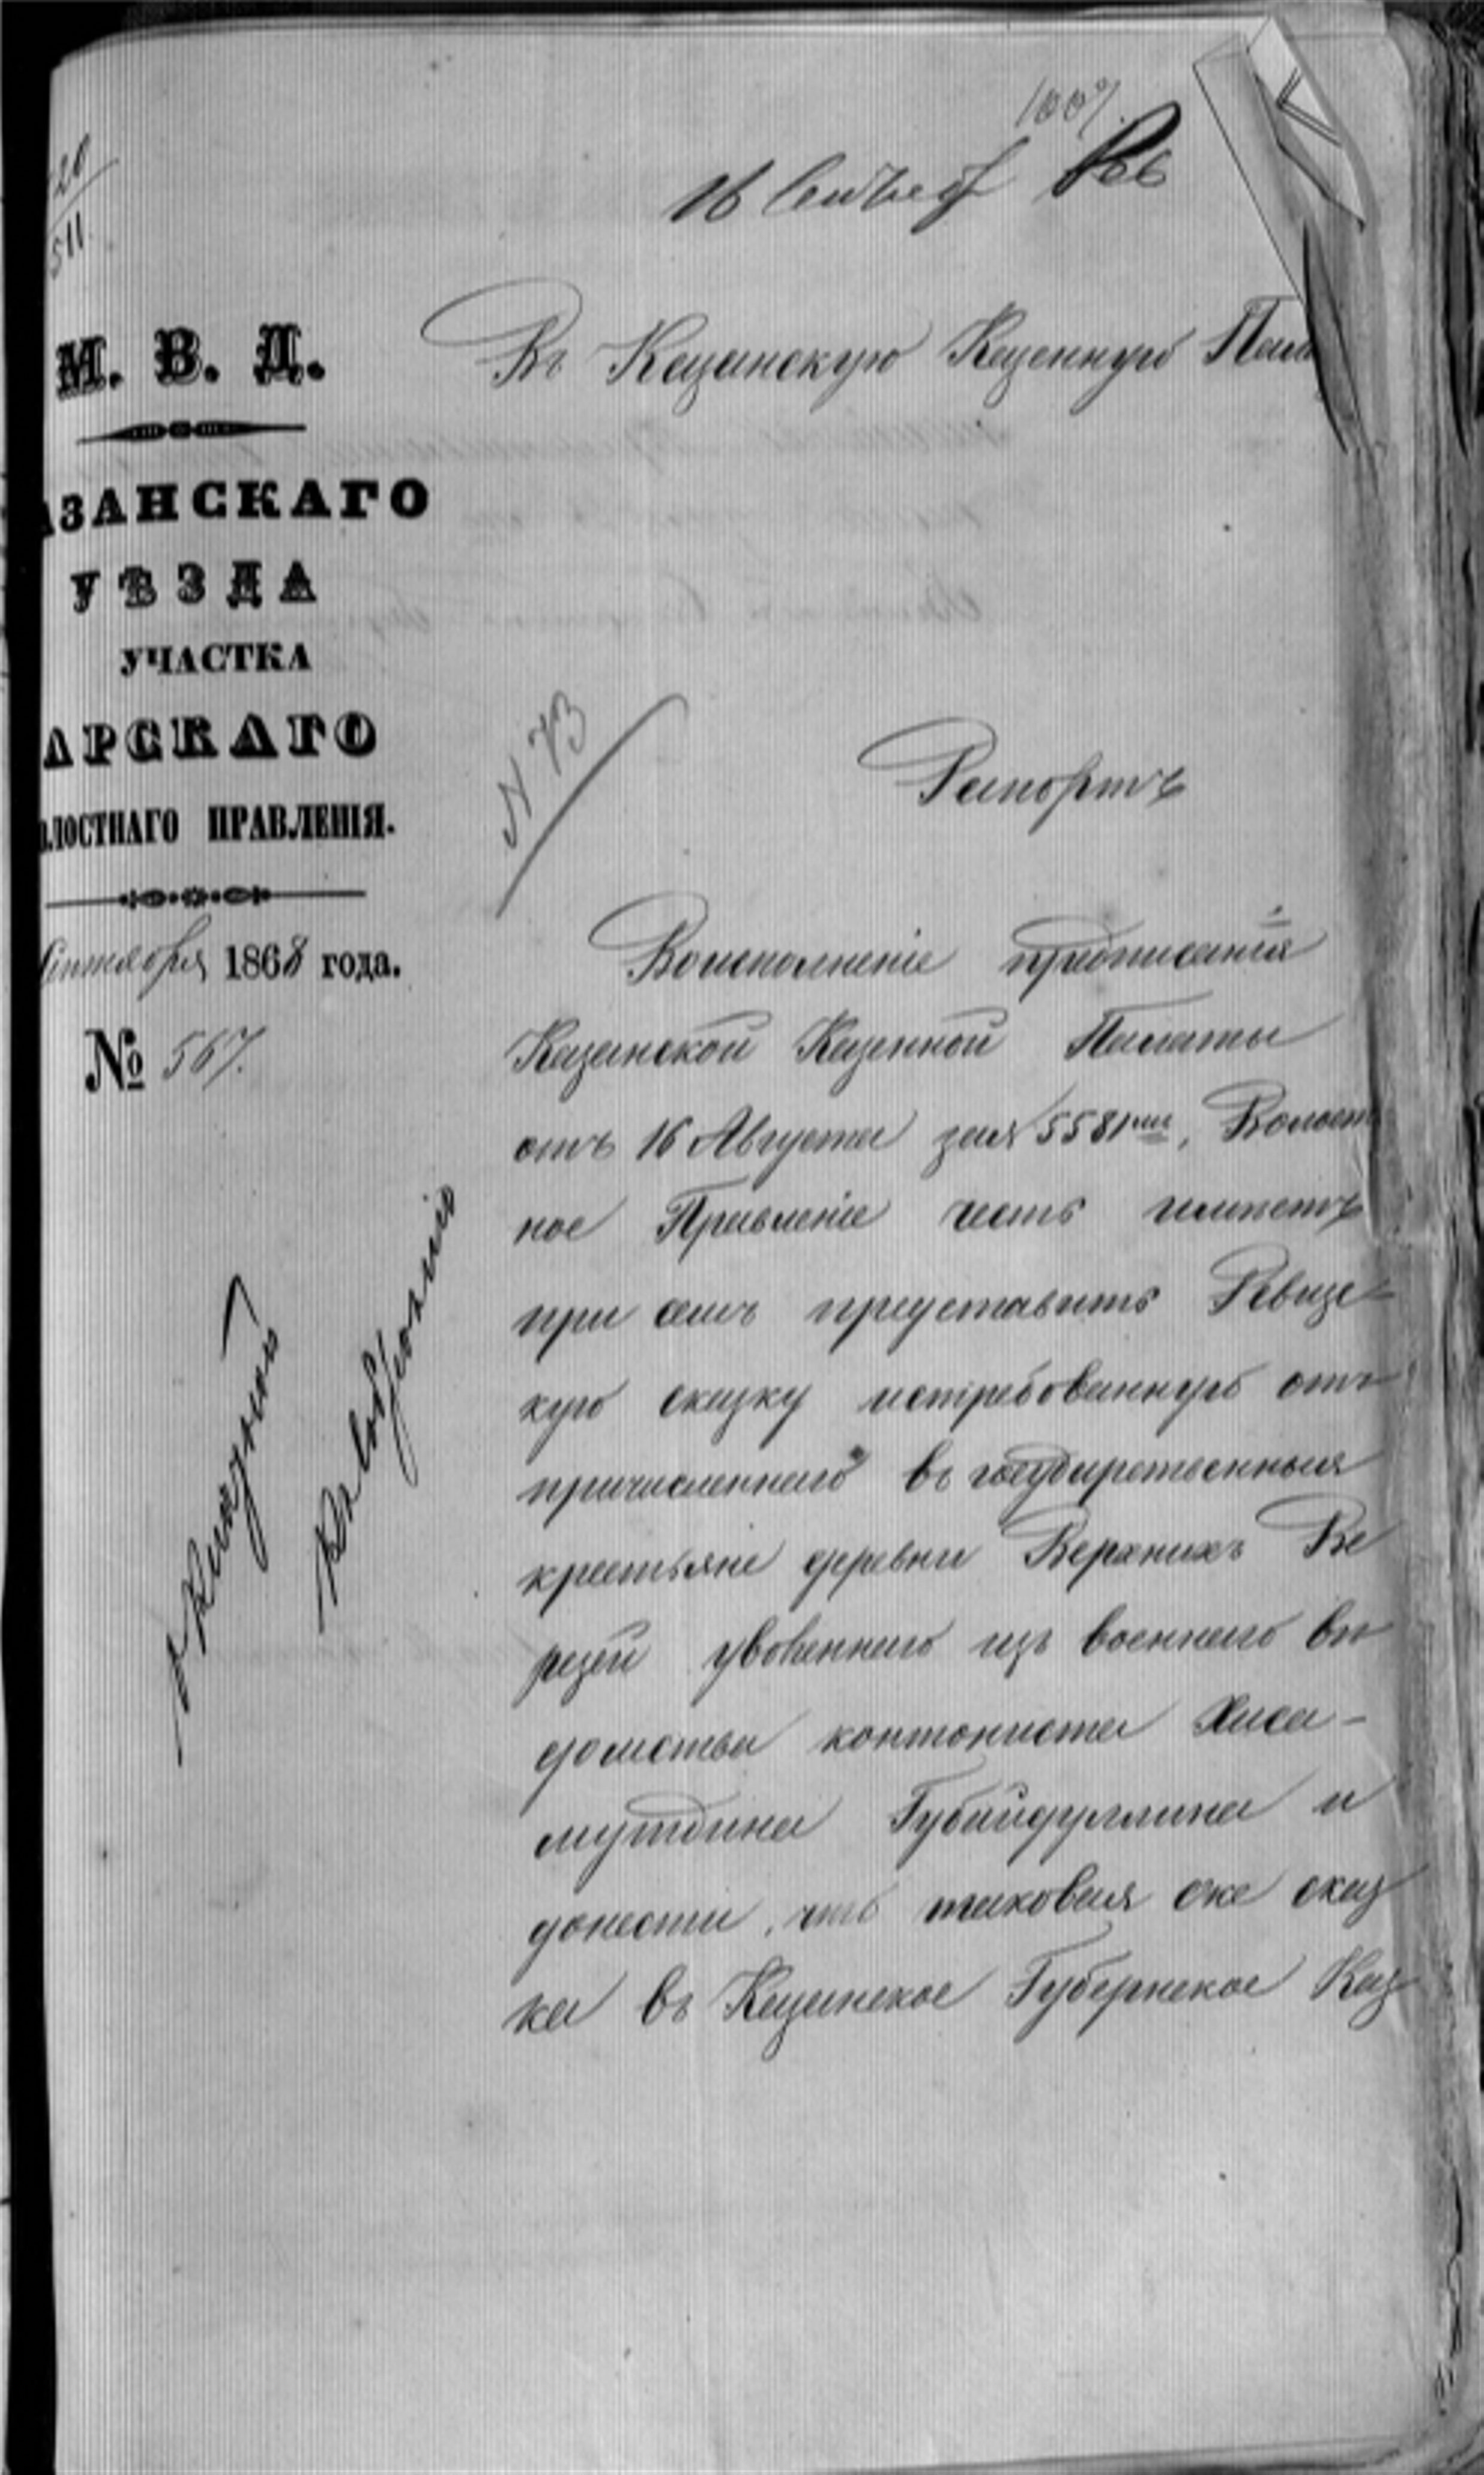 1007.
16 Сентября
20
511
М. В. Д.
АЗАНСКАГО
УѢЗДА
УЧАСТКА
АРСКАГО
ЛОСТНАГО ПРАВЛЕНІЯ.
Сентября 1868 года.
№ 567.
Въ Казанскую Казенную Пала
N 73
Рапортъ
Воисполненіе предписанія
Казанской Казенной Палаты
отъ 16 Августа за № 5581мъ, Волост
ное Правленіе честь имѣетъ
при семъ представить Ревизс
кую сказку истребованную отъ
причисленнаго въ государственныя
крестьяне деревни Верхнихъ Ве
рези уволеннаго изъ военнаго вѣ
домства контониста Хиса-
мутдина Губайдуллина и
донести, что таковая же сказ
ка въ Казанское Губернское Каз